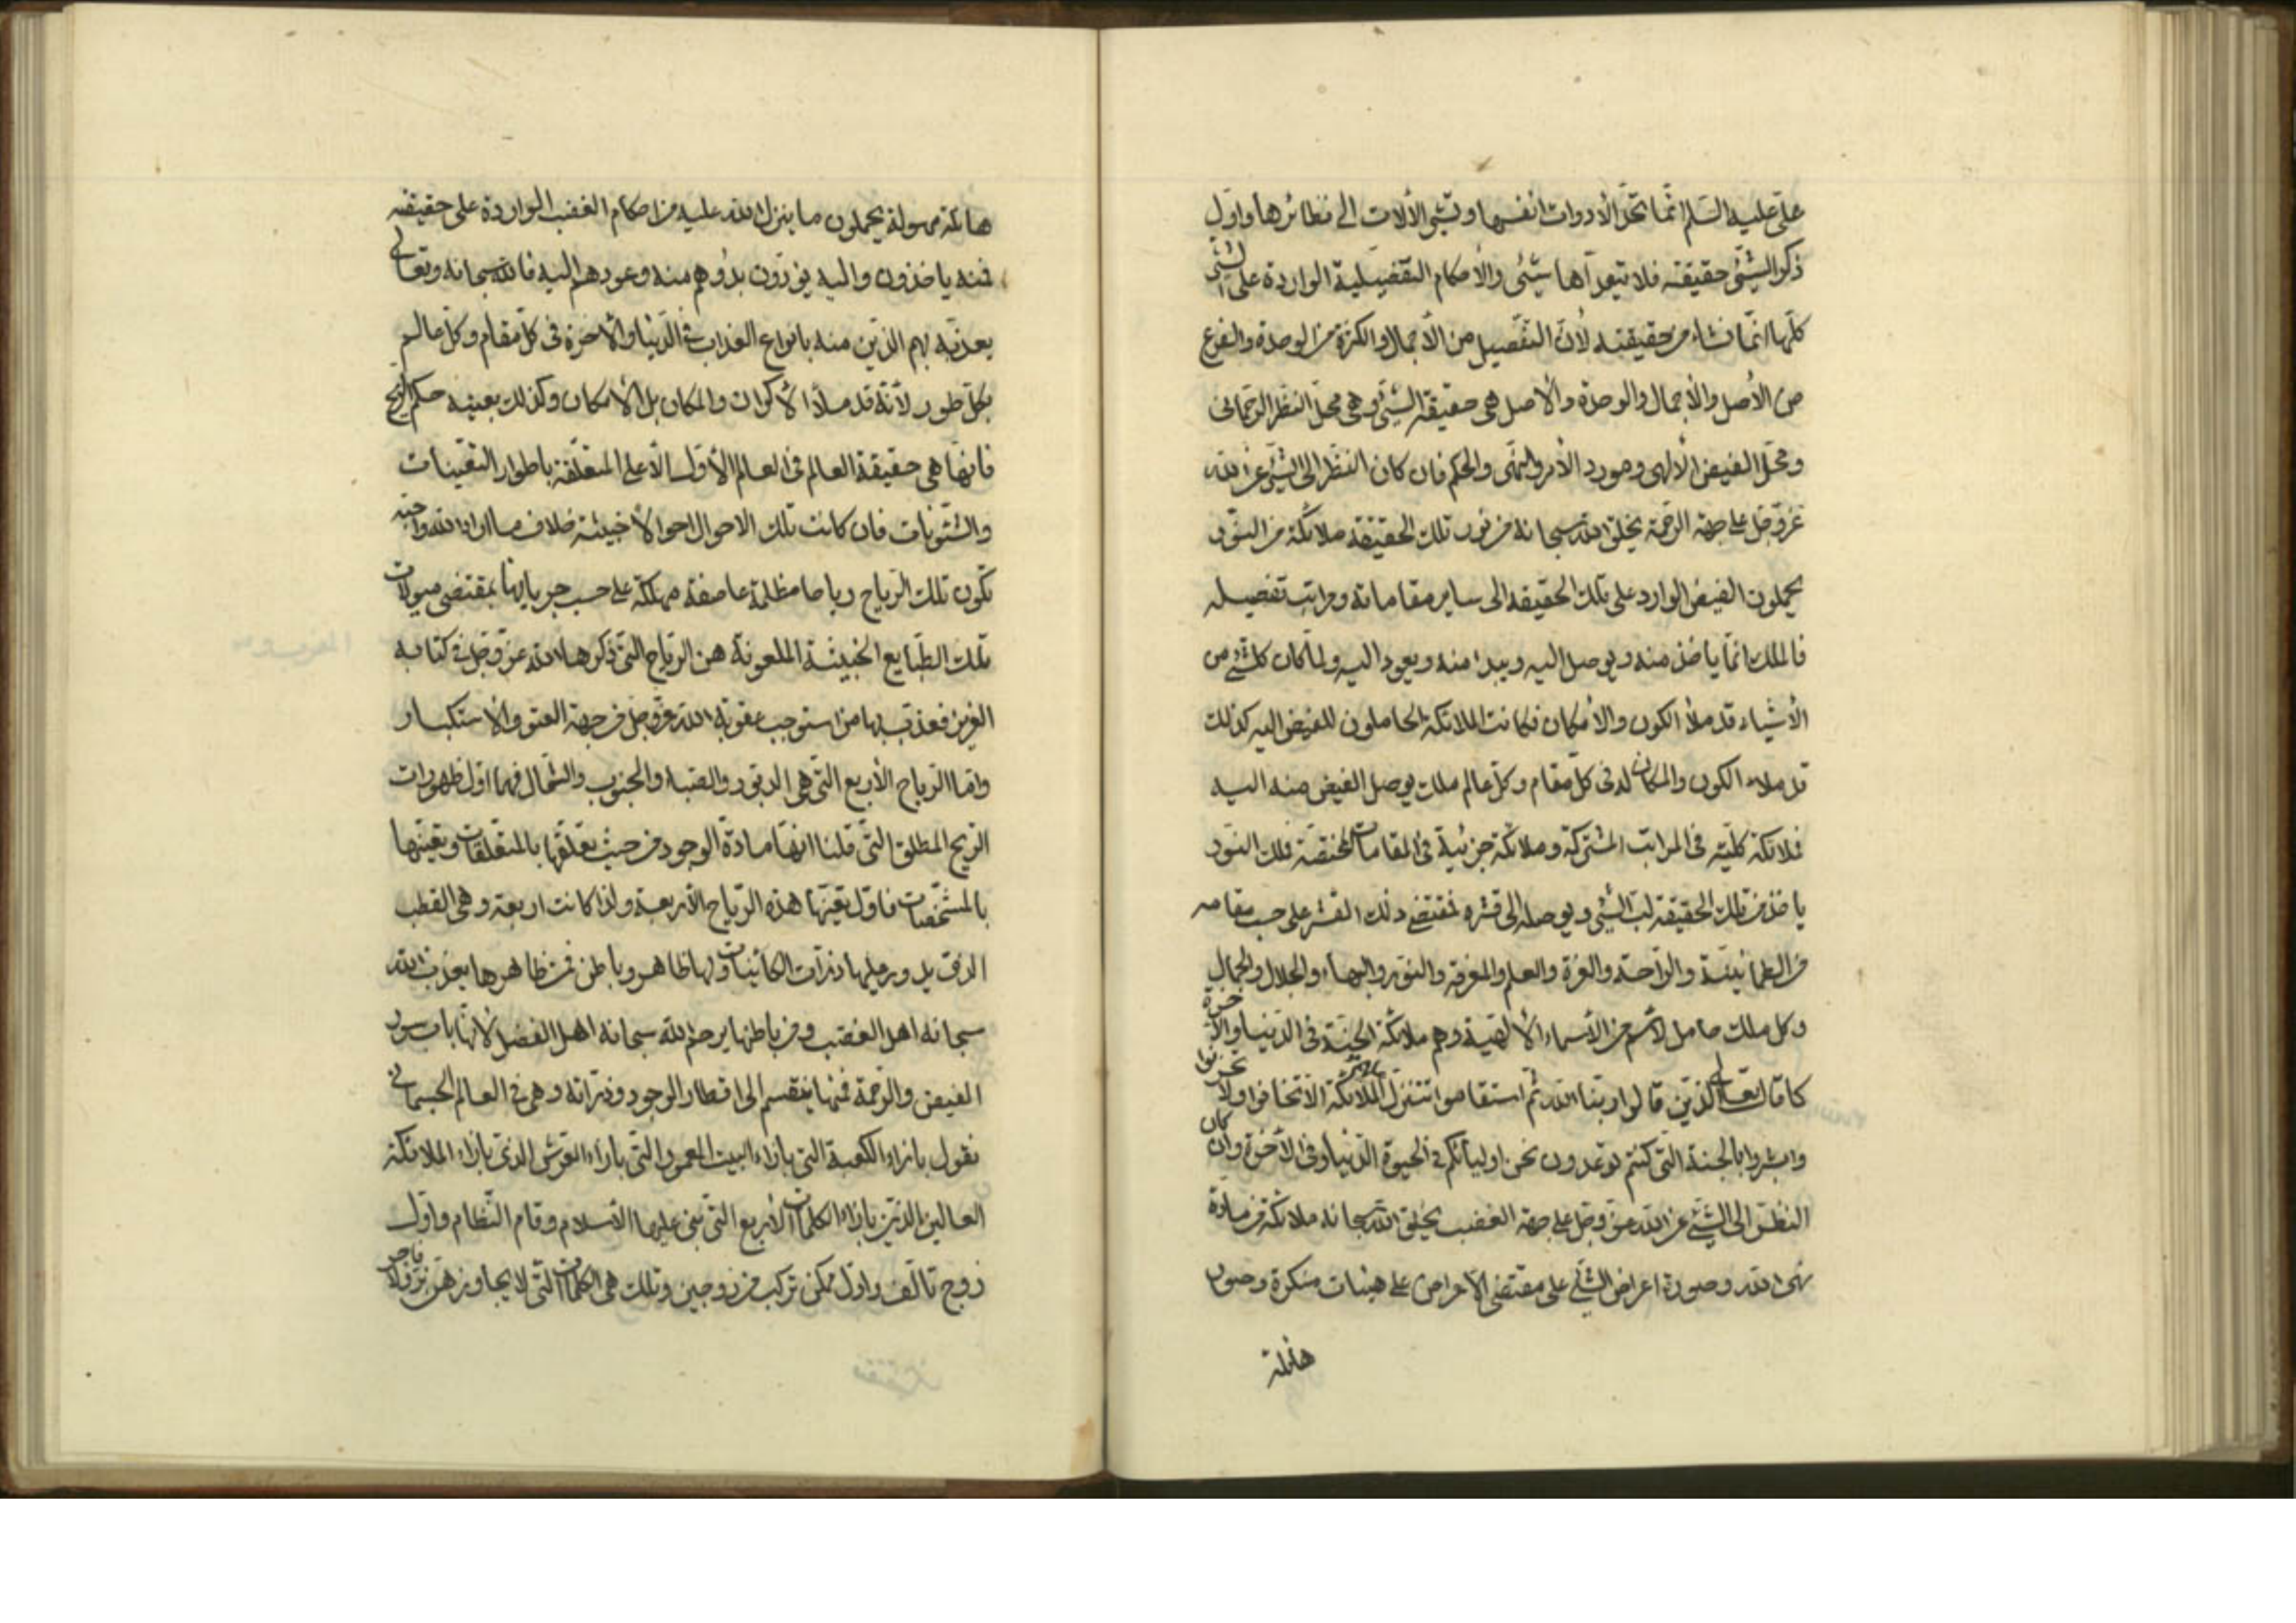 علي عليه السلم انما تحد الأدوات انفسها وتشير الألات الى نظائرها واول
ذكر الشيئ حقيقته فلا يتعداها شيئ والأحكام التفصيلية الواردة على الشئ
كلها انما نشاء من حقيقته لأن التفصيل من الأجمال والكثرة من الوحدة والفرع
من الأصل والأجمال والوحدة والأصل هي حقيقة الشيئ وهي محل النظر الرحماني
ومحل الفيض الألهي ومورد الأمر والنهي والحكم فان كان النظر الى الشيئ من الله
عز وجل على جهة الرحمة يخلق الله سبحانه من نور تلك الحقيقة ملائكة من النور
يحملون الفيض الوارد على تلك الحقيقة الى ساير مقاماته ومراتب تفصيله
فالملك انما ياخذ منه ويوصل اليه ويبدا منه ويعود اليه ولما كان كل شئ من
الأشياء قد ملأ الكون والأمكان فكانت الملائكة الحاملون للفيض اليه كذلك
قد ملاء الكون والمكان له في كل مقام وكل عالم ملك يوصل الفيض منه اليه
فملائكة كلية في المراتب المشتركة وملائكة جزئية في المقامات المختصة فلك النور
ياخذ من تلك الحقيقة لب الشيئ ويوصله الى قشره فمقتضى ذلك القشر على حسب مقامه
من الطمانينة والراحة والعزة والعلم والمعرفة والنور والبهاء والجلال والجمال
وكل ملك حامل لأسم من الأسماء الألهية وهم ملائكة الجنة في الدنيا والآخرة
كما قال تعالى الذين قالوا ربنا الله ثم استقاموا تتنزل عليهم الملائكة الا تخافوا ولا تحزنوا
وابشروا بالجنة التي كنتم توعدون نحن اوليائكم في الحيوة الدنيا وفي الآخرة وان كان
النظر الى الشيئ من الله عز وجل على جهة الغضب يخلق الله سبحانه ملائكة من مادة
نهى الله وصورة اعراض الشئ على مقتضى الأعراض على هيئات منكرة وصور
هائلة
هائلة مهولة يحملون ما ينزل الله عليه من احكام الغضب الواردة على حقيقته
فمنه ياخذون واليه يؤدون بدؤهم منه وعودهم اليه فالله سبحانه وتعالى
يعذبه بهم الذين منه بانواع العذاب في الدنيا والآخرة في كل مقام وكل عالم
بكل طور لأنه قد ملأ الأكوان والمكان بل الأمكان وكذلك بعينه حكم الريح
فانها هي حقيقة العالم في العالم الأول الأعلى المتعلقة باطوار التعينات
والشئونات فان كانت تلك الاحوال احوالا خبيثة خلاف ما اراد الله واحبه
تكون تلك الرياح رياحا مظلمة عاصفة مهلكة على حسب جريانها بمقتضى ميولات
تلك الطبايع الخبيثة الملعونة هن الرياح التي ذكرها الله عز وجل في كتابه
العزيز فعذب بها من استوجب عقوبة الله عز وجل من جهة العتو والاستكبار
واما الرياح الأربع التي هي الدبور والصبا والجنوب والشمال فهما اول ظهورات
الريح المطلق التي قلنا انها مادة الوجود من حيث تعلقها بالمتعلقات وتعينها
بالمشخصات فاول تعينها هذه الرياح الأربعة ولذا كانت اربعة وهي القطب
الذي يدور عليها ذرات الكائنات ولها ظاهر وباطن فمن ظاهرها يعذب الله
سبحانه اهل الغضب ومن باطنها يرحم الله سبحانه اهل الفضل لأنها باب سور
الفيض والرحمة فمنها ينقسم الى اقطار الوجود وذراته وهي في العالم الجسماني
نقول بازاء الكعبة التي بازاء البيت المعمور التي بازاء العرش الذي بازاء الملائكة
العالين الذين بازاء الكلمات الأربع التي بني عليها الأسلام وقام النظام واول
زوج تالف واول ممكن تركب من زوجين وتلك هي الكلمات التي لا يجاوزهن بر ولا فاجر